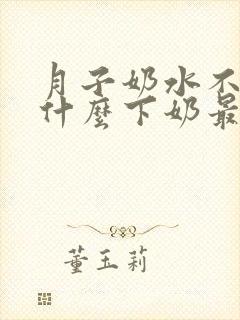 月子奶水不
什麼下奶最
董玉莉